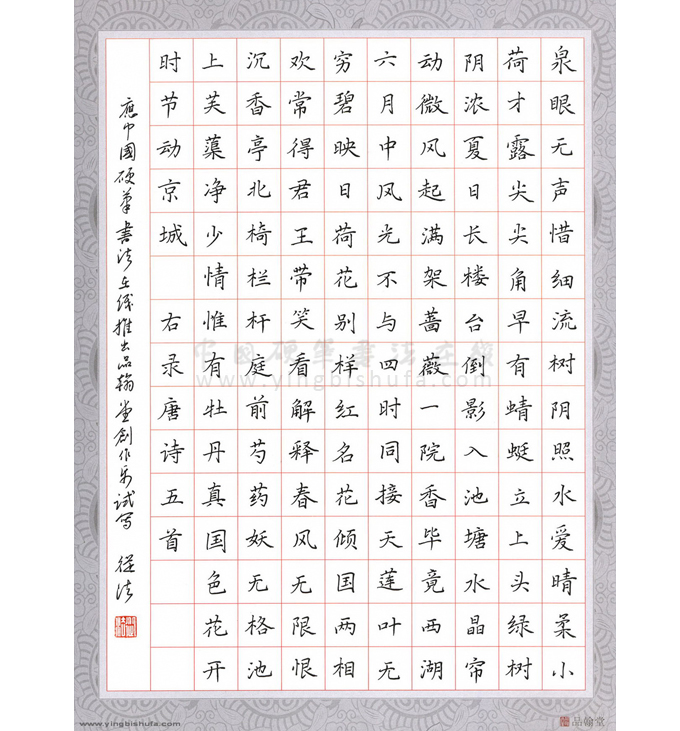 泉眼无声惜细流树阴照水爱晴柔小
荷才露尖尖角早有蜻蜓立上头绿树
阴浓夏日长楼台倒影入池塘水晶帘
动微风起满架蔷薇一院香毕竟西湖
六月中风光不与四时同接天莲叶无
穷碧映日荷花别样红名花倾国两相
欢常得君王带笑看解释春风无限恨
沉香亭北椅栏杆庭前芍药妖无格池
上芙蕖净少情惟有牡丹真国色花开
时节动京城 右录唐诗五首
應中國硬筆書法在线推出品翰堂創作試写 從法
中国硬筆書法在线
www.yingbishufa.com
www.yingbishufa.com
品翰堂